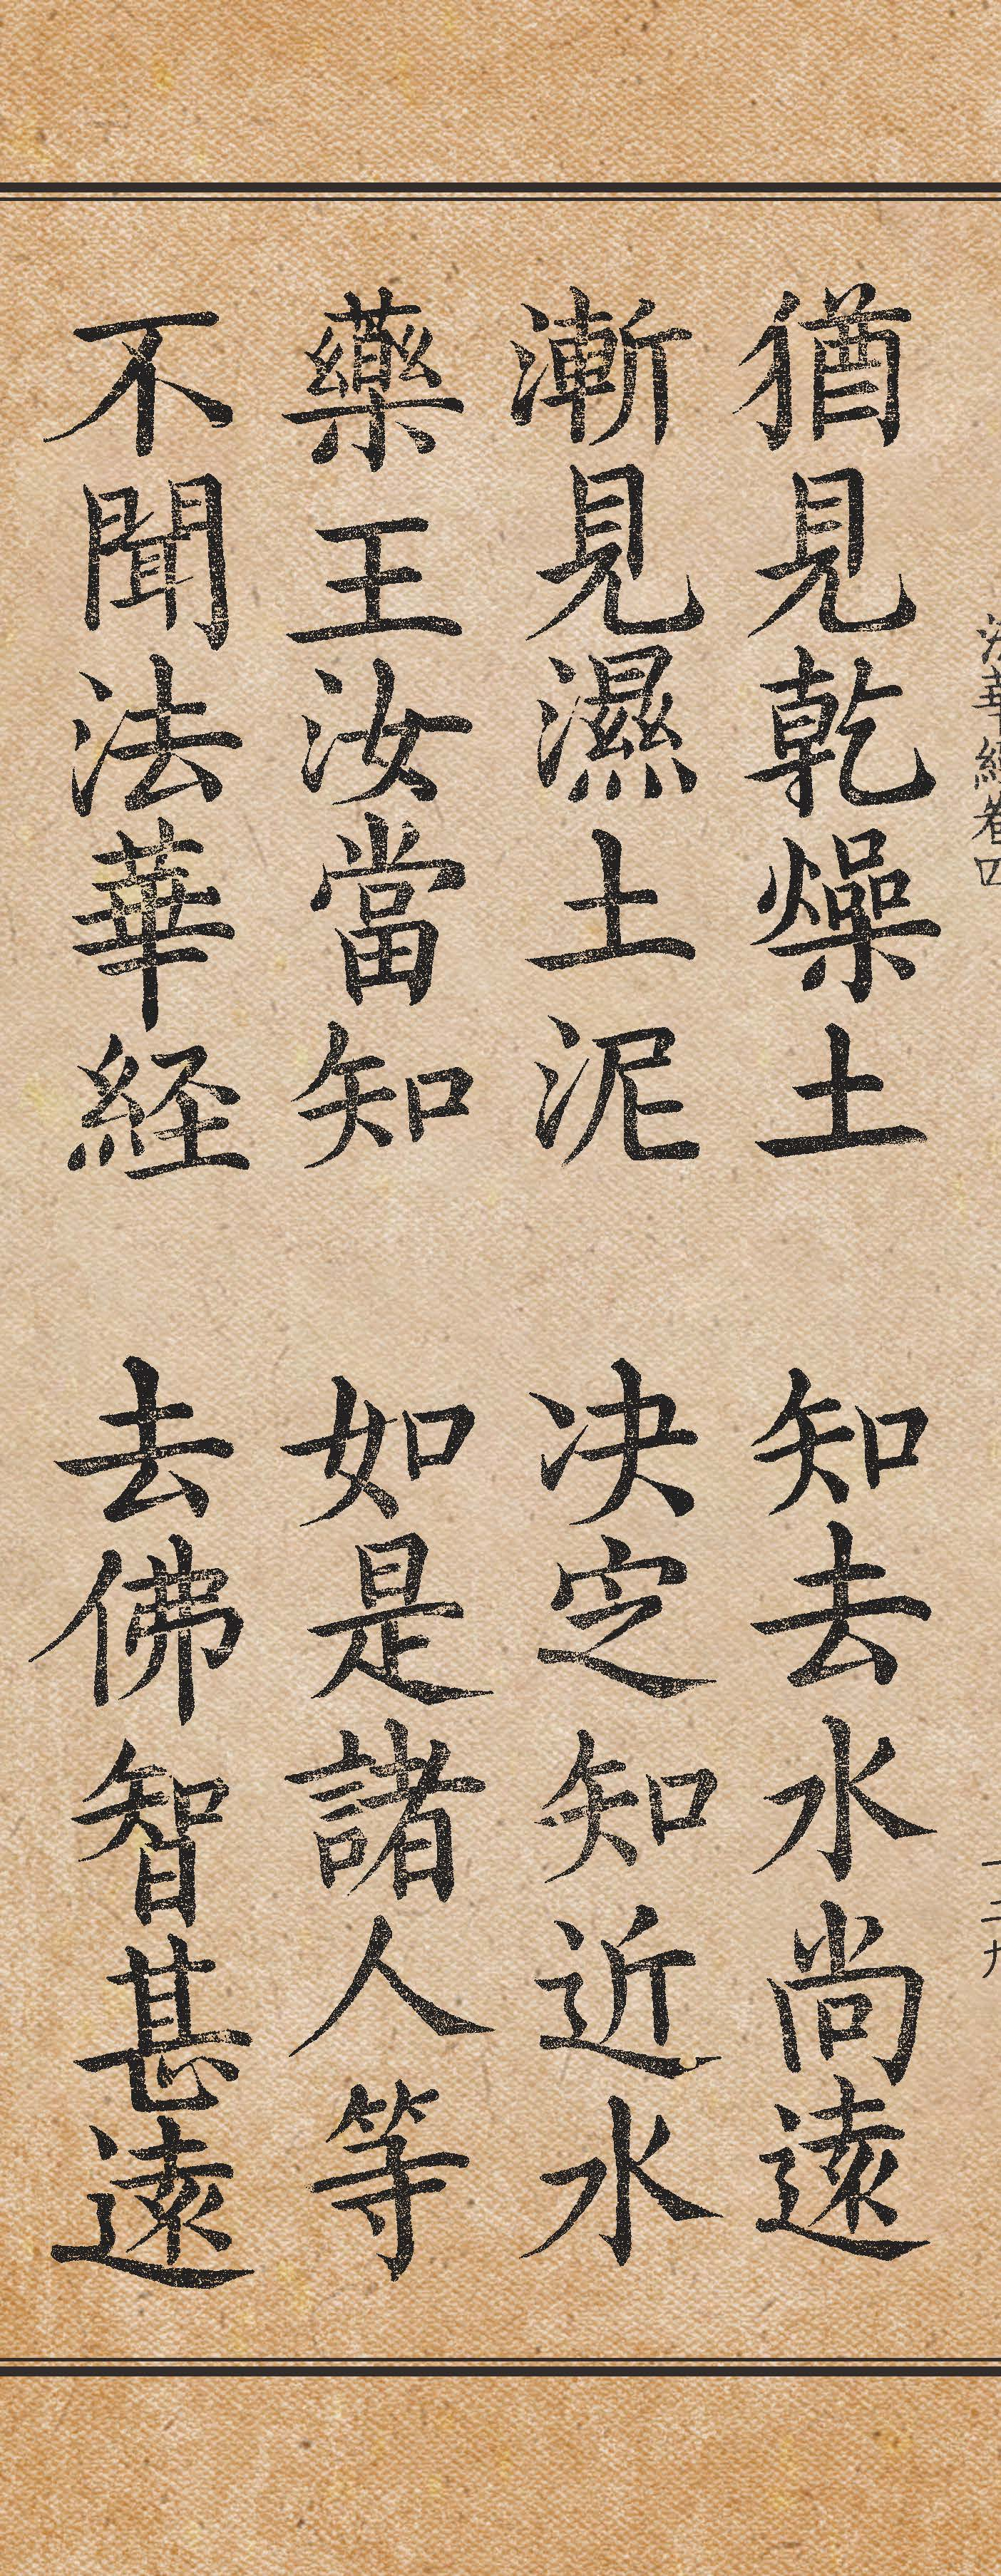 法華經卷四
一二九
猶見乾燥土 知去水尚遠
漸見濕土泥 決定知近水
藥王汝當知 如是諸人等
不聞法華経 去佛智甚遠